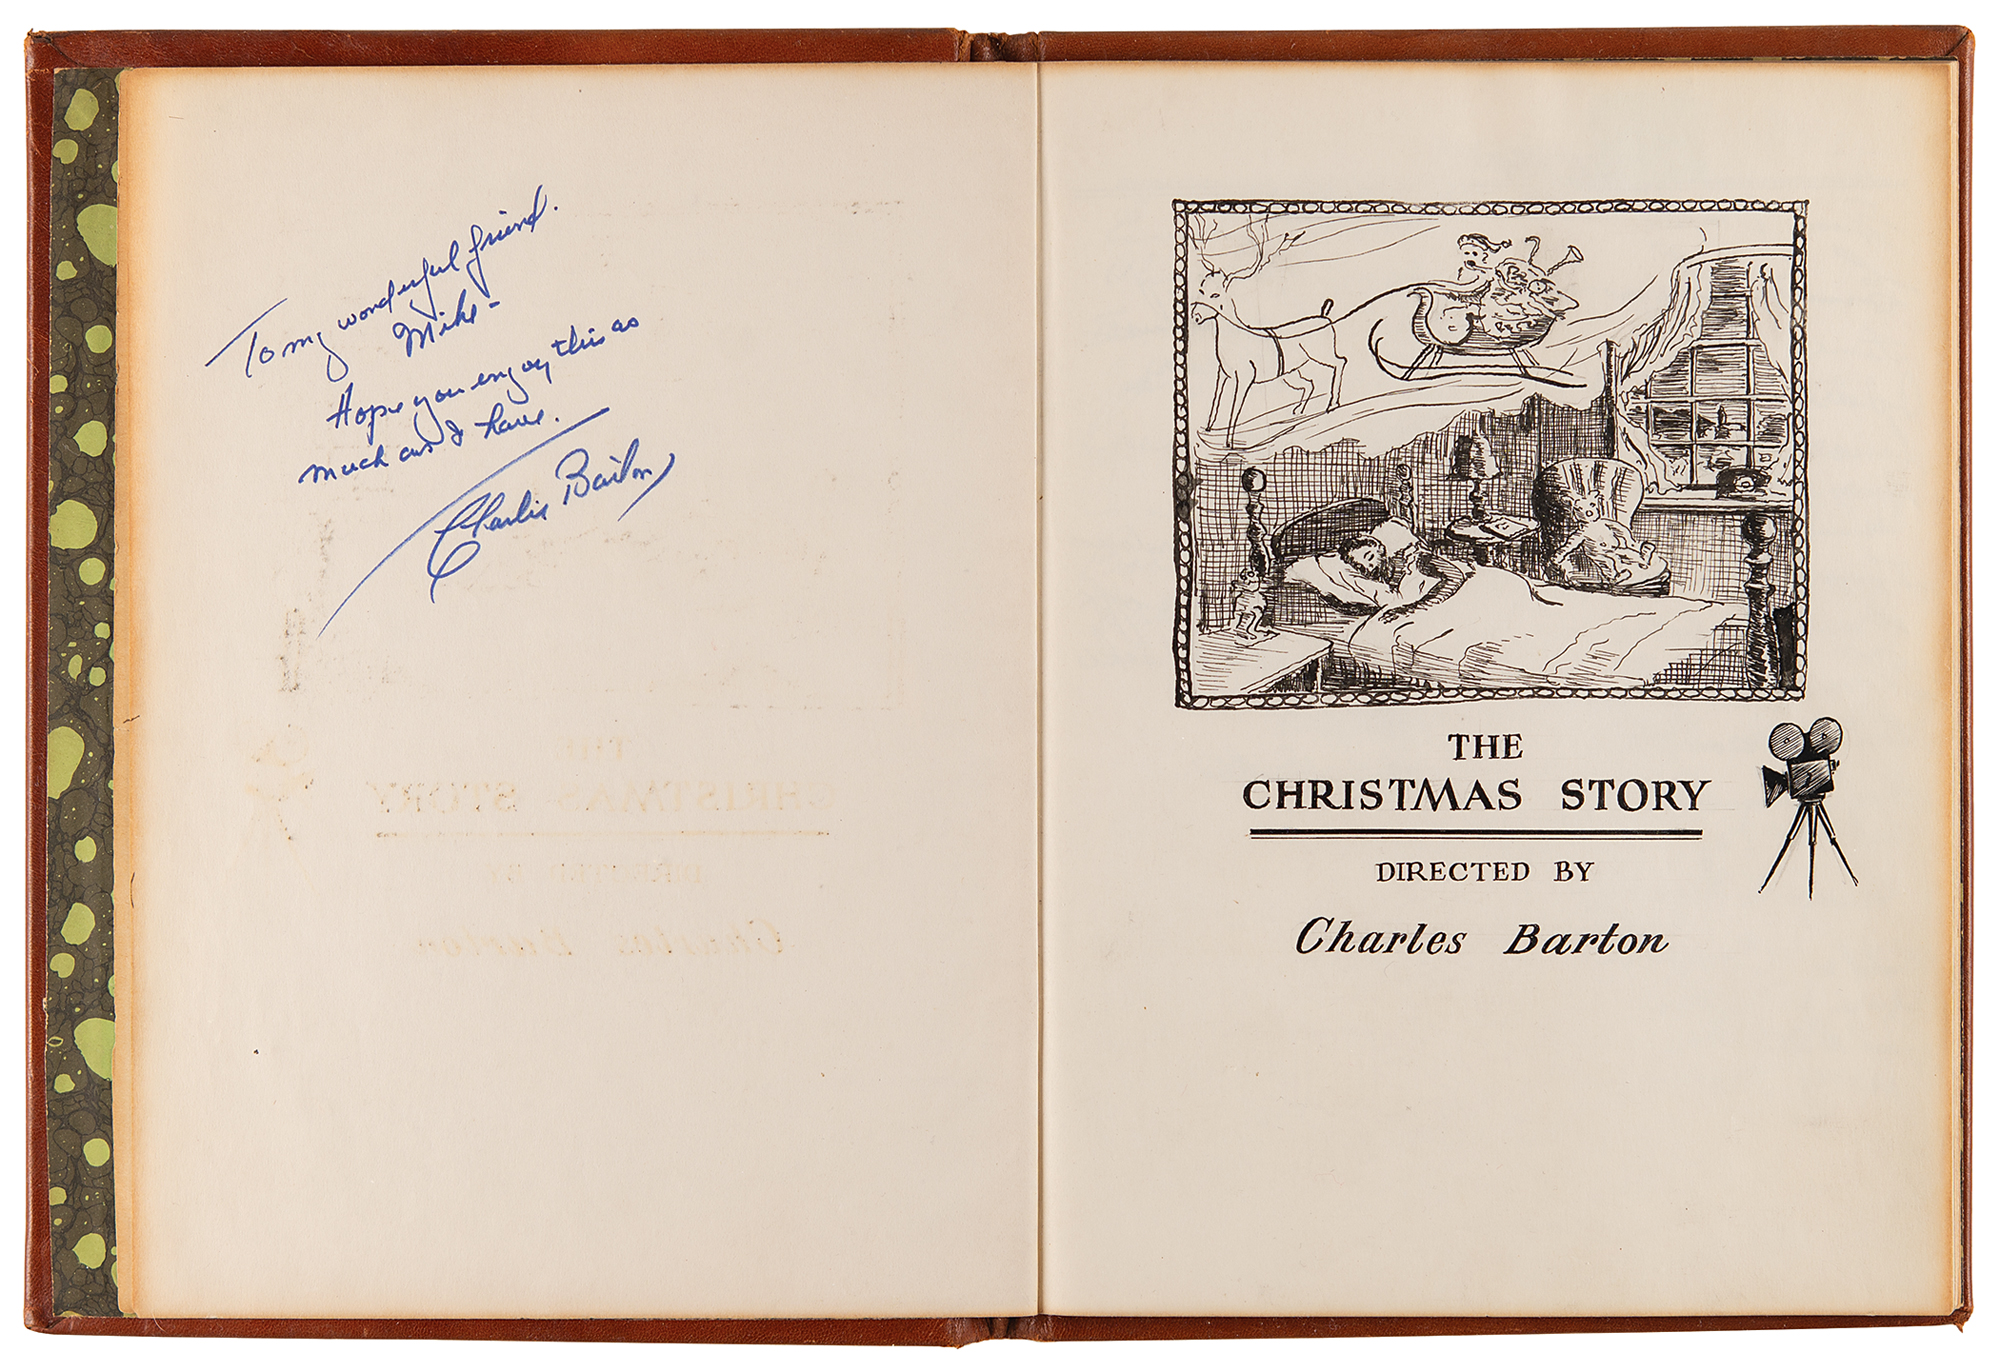 To my wonderful friend.
Mike-
Hope you enjoy this as
much as I have.
Charlie Barton
THE
CHRISTMAS STORY
DIRECTED BY
Charles Barton